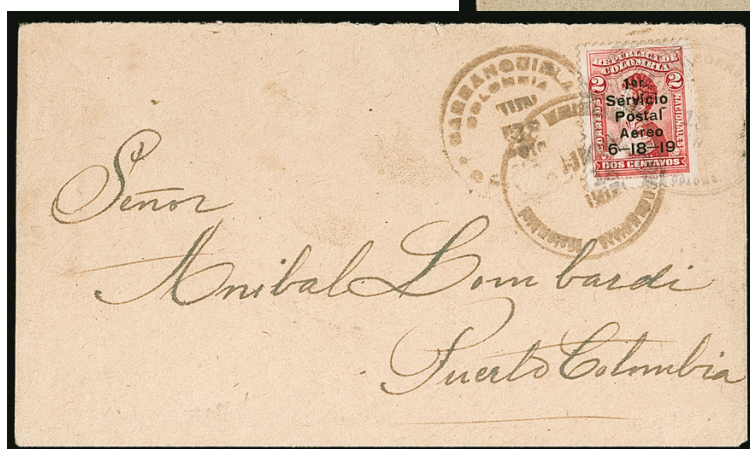 BARRANQUILLA
COLOMBIA
REPUBLICA DE
COLOMBIA
2 2
CORREOS NACIONALES
1er.
Servicio
Postal
Aereo
6-18-19
DOS CENTAVOS
Señor
Anibal Lombardi
Puerto Colombia